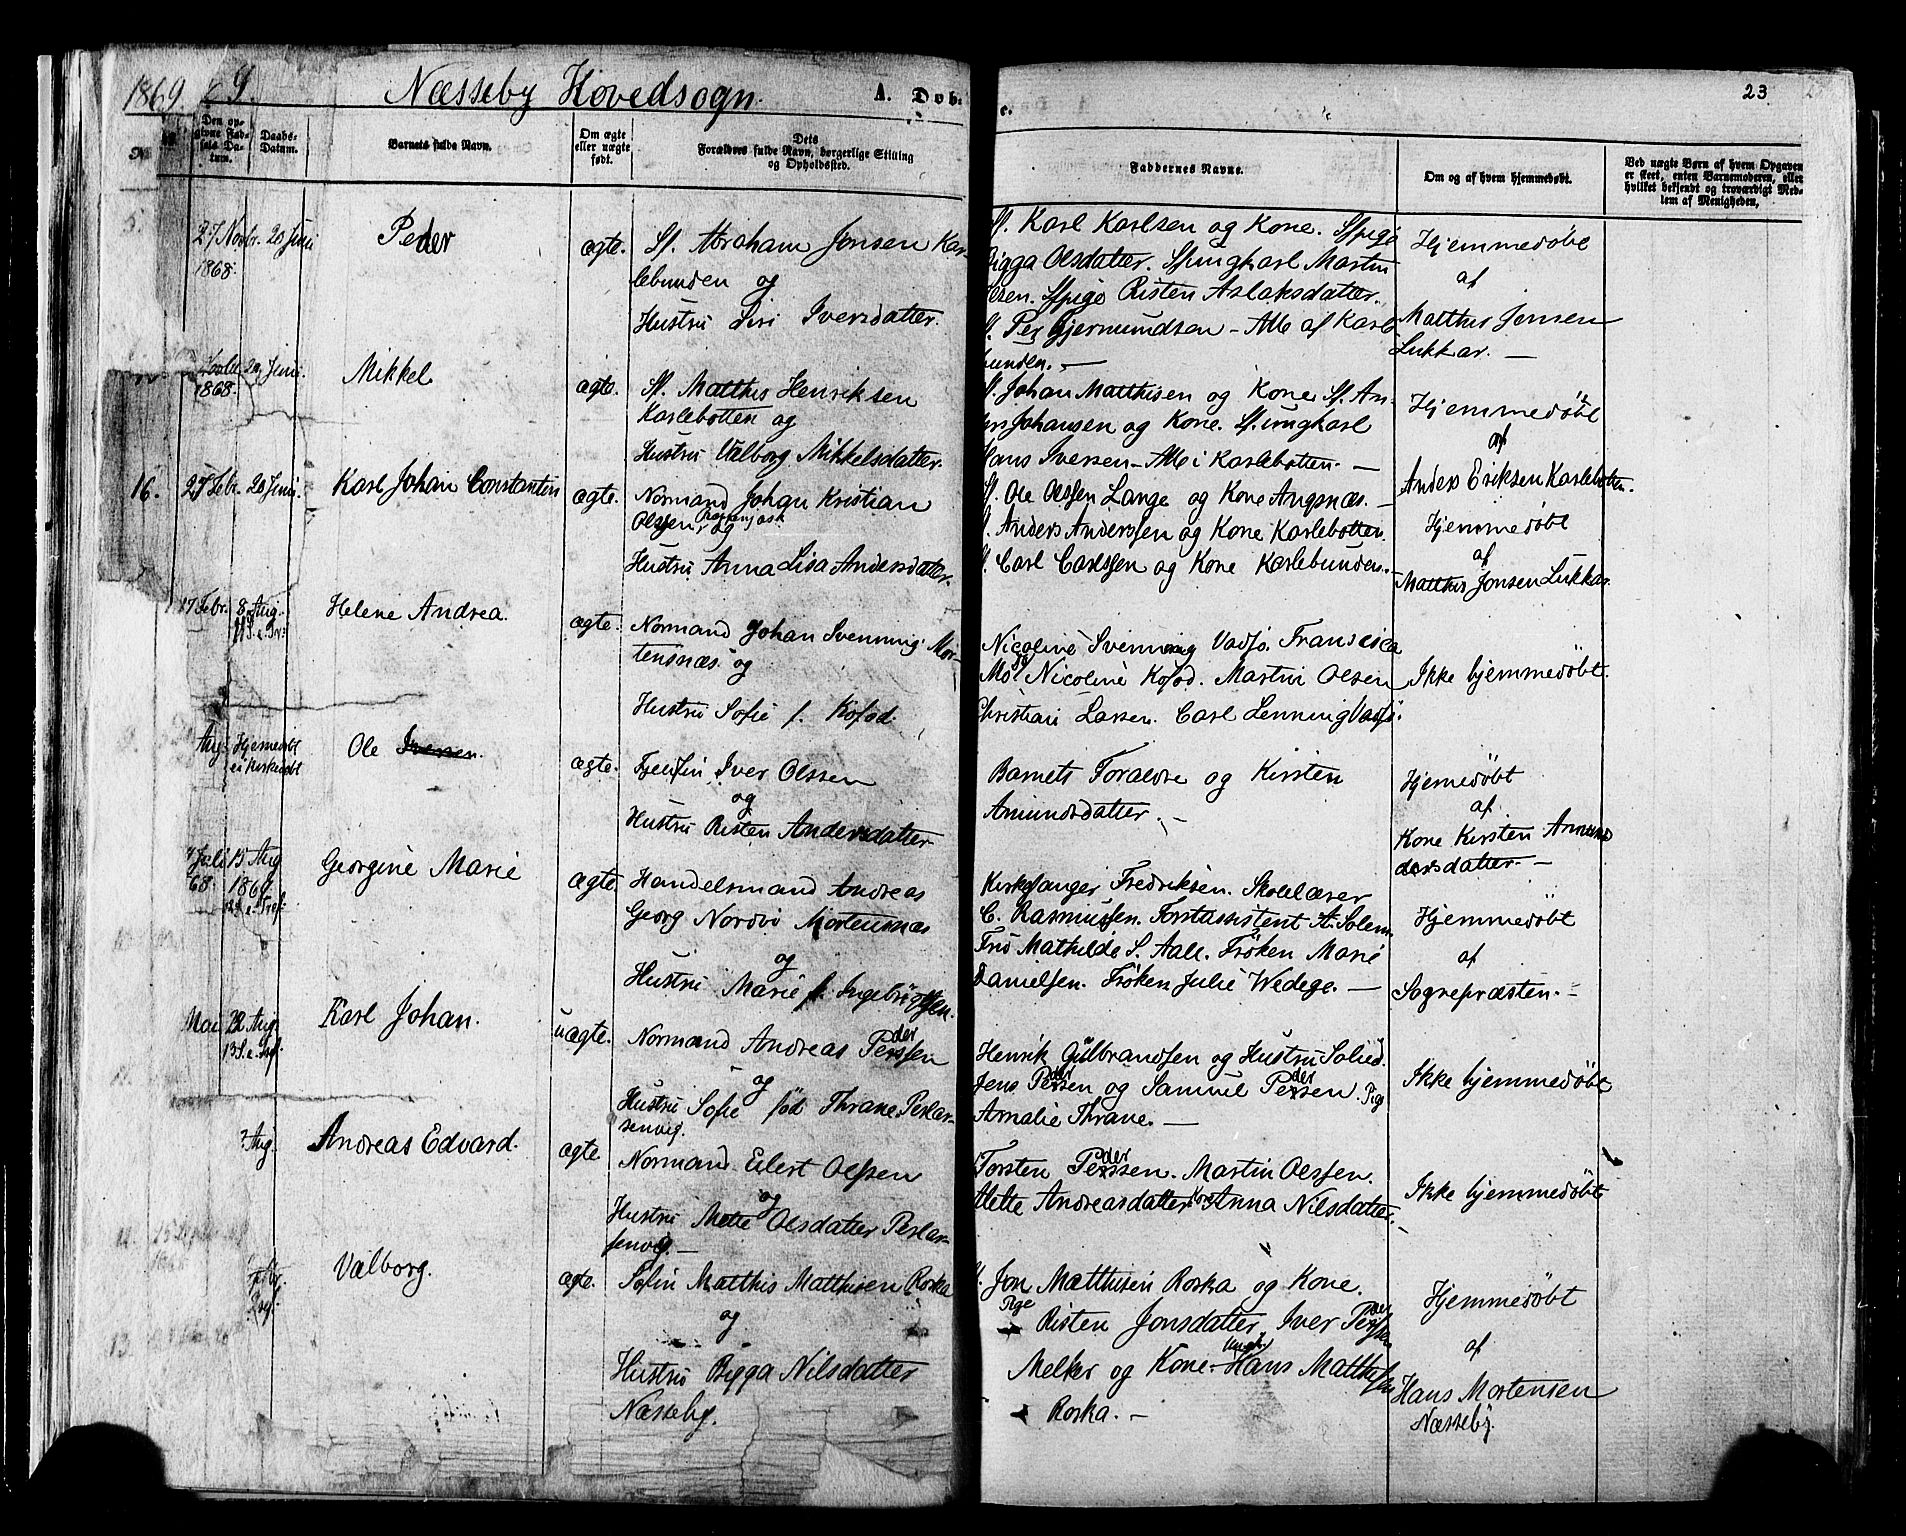 1869. 9. Næsseby Hovedsogn. A. Døb-
e. 23
Den op-
givne Fød-
sels Da-
tum.
Daabs-
Datum.
Barnets fulde Navn.
Om ægte
eller uægte
født.
Dets
Forældres fulde Navn, borgerlige Stilling
og Opholdssted.
Faddernes Navne.
Om og af hvem hjemmedøbt.
Ved uægte Børn af hvem Opgaven
er skeet, enten Barnemoderen, eller
hvilket bekjendt og troværdigt Med-
lem af Menigheden.
5.
27 Novbr. 20 Juni
1868.
Peder
ægte.
Sf. Abraham Jonsen Kar-
lebunden og
Hustru Siri Iversdatter.
Sf. Karl Karlsen og Kone. Sfpige
Bigga Olsdatter. Sfungkarl Martin
Sfpige Risten Aslaksdatter.
Per Gjermundsen – Alle af Karle
bunden. –
Hjemmedøbt
af
Matthis Jonsen
Lukkar. –
1868. 20 Juni.
Mikkel
ægte.
Sf. Matthis Henriksen
Karlebotten og
Hustru Valborg Mikkelsdatter.
Sf. Johan Matthisen og Kone Sf. An-
Johansen og Kone. Sf. ungkarl
Hans Iversen – Alle i Karlebotten. –
Hjemmedøbt
af
Anders Eriksen Karlebotten.
16.
27 Febr. 20 Juni.
Karl Johan Constantin
ægte.
Normand Johan Kristian
Olssen, og
Hustru Anna Lisa Andersdatter.
Sf. Ole Olssen Lange og Kone Angsnæs. –
Sf. Anders Anderssen og Kone Karlebotten.
Sf. Carl Carlssen og Kone Karlebunden. –
Hjemmedøbt
af
Matthis Jonsen Lukkar.
17 Febr. 8 Aug.
11 S. e. Tr.
Helene Andrea.
ægte.
Normand Johan Svenning Mor-
tensnæs og
Hustru Sofie f. Kofod.
Nicoline Svenning Vadsø. Francisca
Nicoline Kofod. Martin Olsen
Christian Larsen. Carl Lenning Vadsø.
Ikke hjemmedøbt.
Aug Hjemedøbt
ei kirkedøbt
Ole Iversen.
ægte.
Fjelfin Iver Olssen
og
Hustru Risten Andersdatter
Barnets Forældre og Kirsten
Amundsdatter. –
Hjemedøbt
af
Kone Kirsten Amund
dersdatter. –
4 Juli 15 Aug
68. 1869
12 S. e. Tref.
Georgine Marie
ægte
Handelsmand Andreas
Georg Nordvi Mortensnæs
og
Hustru Marie f. Ingebrigtsen.
Kirkesanger Fredriksen. Skolelærer
C. Rasmussen. Forstassistent A. Solem.
Frø Mathilde S. Aall. Frøken Marie
Danielsen. Frøken Julie Wedege. –
Hjemmedøbt
af
Sognepræsten. –
Mai 22 Aug.
13 S. e. Tref.
Karl Johan.
uægte.
Normand Andreas Pederssen
og
Hustru Sofie fød Thrane Perlar-
senvig.
Henrik Gulbrandsen og Hustru
Jens Pedersen og Samuel Pedersen. Pig
Amalie Thrane. –
Ikke hjemmedøbt
Aug.
Andreas Edvard.
ægte
Normand Eilert Olssen
og
Hustru Mette Olsdatter Perlar-
senvig. –
Torsten Pederssen. Martin Olssen.
Mette Andreasdatter Kone Anna Nilsdatter. –
Ikke hjemmedøbt
Valborg.
ægte.
Søfin Matthis Matthisen Roska
og
Hustru Bigga Nilsdatter
Næsseby.
Sf. Jon Matthisen Roska og Kone.
Pige
Risten Jonsdatter Iver Pedersen
Melker og Kone. Ungk Hans Matthisen
Roska. –
Hjemmedøbt
af
Hans Mortensen
Næsseby.